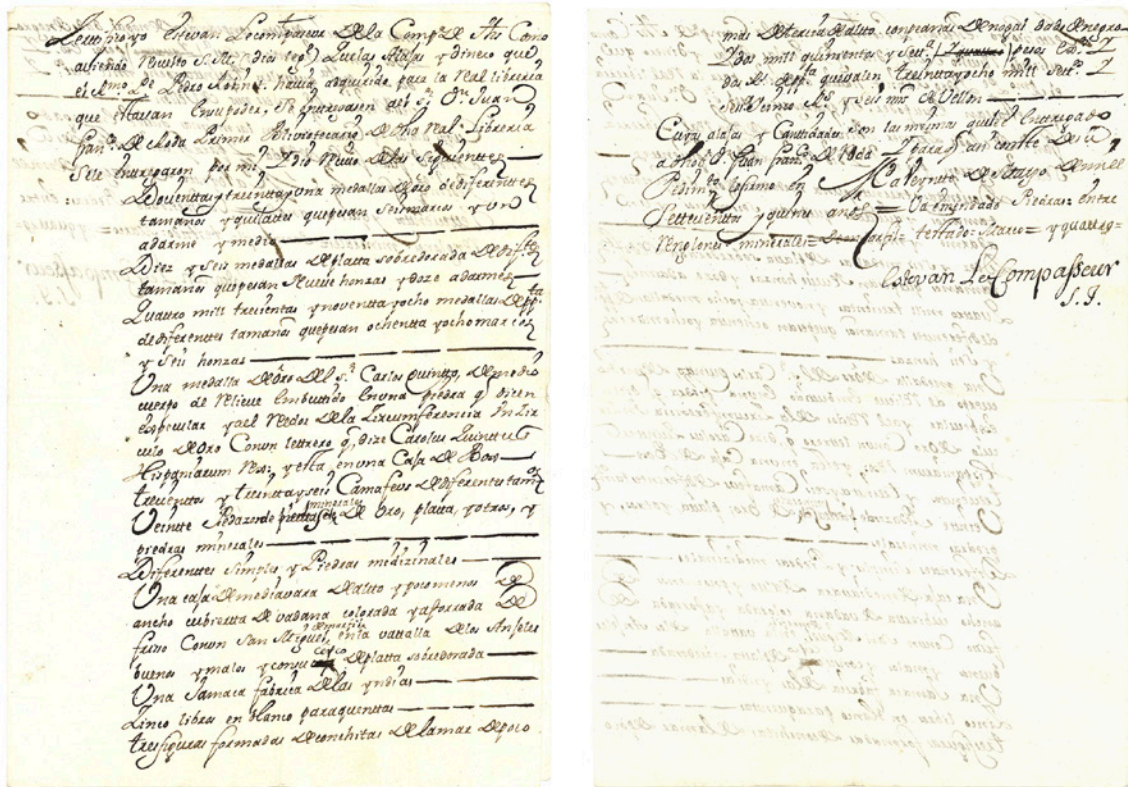 Zertifico yo Estevan Lecompasseur De la Comp.ª De Jhs Como
aviendo Resuelto S. M. (Dios le g.e) Que las Alajas y dinero que
el Rmo. P.e Pedro Robinet havia adquirido para la Real libreria
que estavan en su poder, se entregasen al s.r D.n Juan
fran.co De Roda Primer Bivliotecario De dha Real Libreria
Se le entregaron por mi Y dio Recivo De las siguientes
Dovcenttas y treintta y una medallas De oro de diferenttes
tamaños y quilattes que pesan seis marcos y un
adarme y medio
Diez y seis medallas De platta sobredorada De difr.tes
tamaños que pesan Nueve honzas y doze adarmes
Quattro mill trecientas y noventta y ocho medallas De pp.ta
de diferenttes tamaños que pesan ochentta y ocho marcos
y seis honzas
Una medalla De oro Del s.r Carlos quintto, De medio
cuerpo de Relieve embuttido en una piedra q dizen
espicular y al Rededor De la Zircumferencia Un Zir
culo De oro Con un lettrero q dize Carolus Quinttus
Hispaniarum Rex: y esta en una Caja De Box
trecienttos y treintta y seis Camafeos De diferentes tam.os
minerales
Veintte Pedazos de piedras De oro, platta, y otros, y
piedras minerales
Diferenttes simples y Piedras medizinales
Una caja De media vara De altto y poco menos De
ancho cubiertta de vadana colorada y aforrada De
friso Con un San Miguel en la vattalla De los Anjeles
buenos y malos y con su De platta sobredorada
Una Jamaca fabrica De las yndias
Zinco libros en blanco para quenttas
tres figuras formadas De conchitas De la mar De poco
mas De tercia De altto con peanas De nogal dado De negro
Y dos mill quinientos y sett.ta pesos Y
dos R.s De pp.ta quivalen treintta y ocho mill sett.os Y
seis mrs De Vellon
Cuyas alajas y Canttidades son las mismas que he Entregado
a dho s.r D. Juan fran.co De Roda Y para q an constte De su
Pedim.to lo firmo en M.d a Veyntte De Mayo De mill
Settecienttos y quinze años = Va emendado Piedras = entre
Renglones = minerales = De marfil = testado = Marco = y quattro =
Estevan Le Compasseur
S. J.